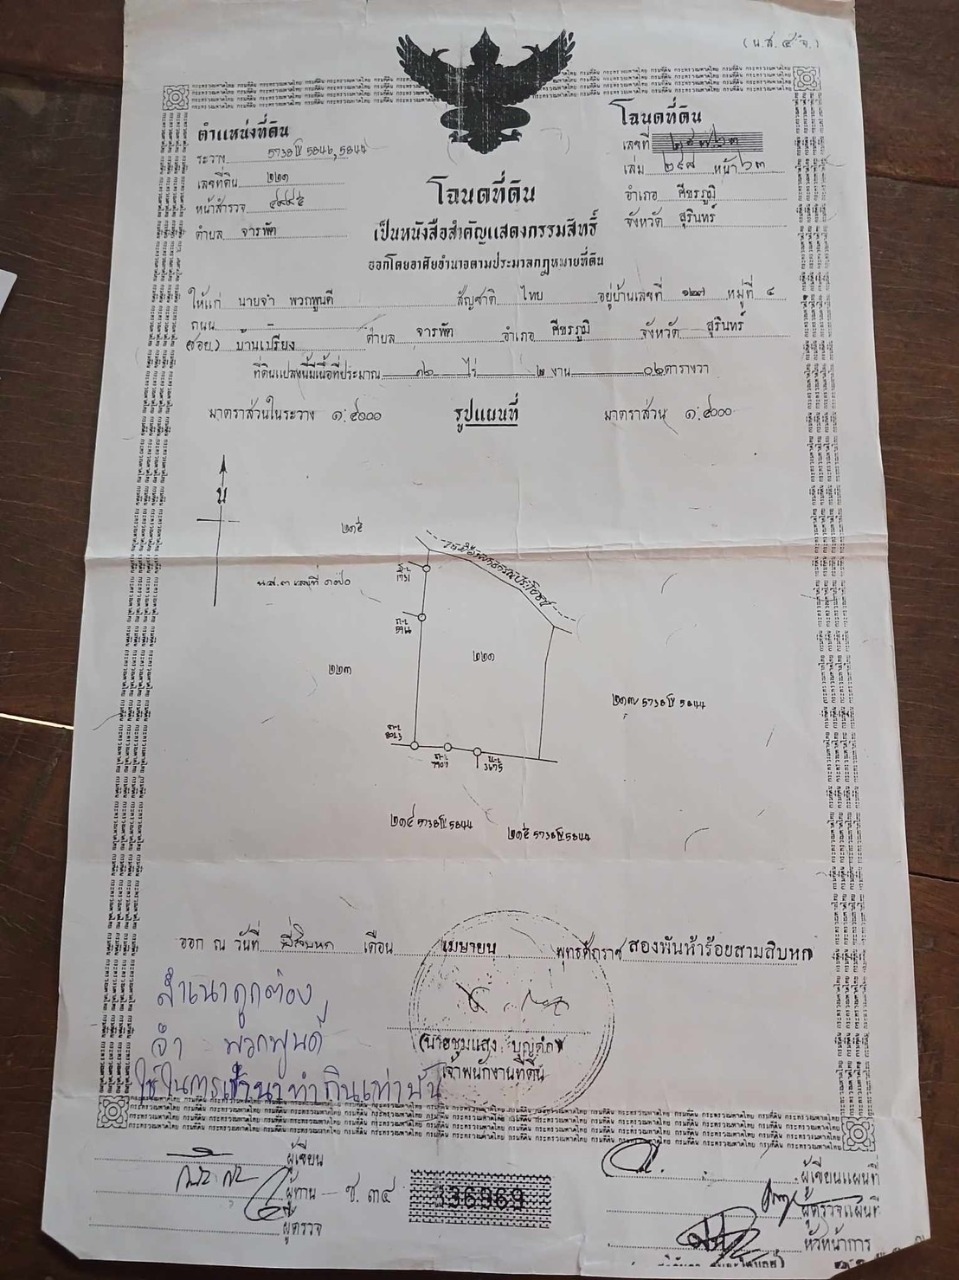 (น.ส. ๔ จ.)
ตำแหน่งที่ดิน
ระวาง 5738 IV 5846, 5844
เลขที่ดิน ๒๒๑
หน้าสำรวจ
ตำบล จารพัต
โฉนดที่ดิน
เลขที่ ๒๙๗๖๓
เล่ม ๒๙๘ หน้า ๖๓
อำเภอ ศีขรภูมิ
จังหวัด สุรินทร์
โฉนดที่ดิน
เป็นหนังสือสำคัญแสดงกรรมสิทธิ์
ออกโดยอาศัยอำนาจตามประมวลกฎหมายที่ดิน
ให้แก่ นายจำ พวกพูนดี สัญชาติ ไทย อยู่บ้านเลขที่ ๑๒๗ หมู่ที่ ๔
ถนน
(ซอย) บ้านเปรียง ตำบล จารพัต อำเภอ ศีขรภูมิ จังหวัด สุรินทร์
ที่ดินแปลงนี้มีเนื้อที่ประมาณ ๑๖ ไร่ ๒ งาน ๐๒ ตารางวา
มาตราส่วนในระวาง ๑:๔๐๐๐ รูปแผนที่ มาตราส่วน ๑:๔๐๐๐
น
๒๑๕
ทางสาธารณประโยชน์
น.ส.๓ เลขที่
๒๒๓
๒๒๑
๒๑๗ 5738 IV 5844
๒๑๔ 5738 IV 5844
๒๑๕ 5738 IV 5844
ออก ณ วันที่ ยี่สิบหก เดือน เมษายน พุทธศักราช สองพันห้าร้อยสามสิบหก
สำเนาถูกต้อง
จำ พวกพูนดี
ใช้ในการเช่านาทำกินเท่านั้น
(นายชุมแสง บุญดก)
เจ้าพนักงานที่ดิน
ผู้เขียน
ผู้ทาน
ผู้ตรวจ
ช. ๓๔
336969
ผู้เขียนแผนที่
ผู้ตรวจแผนที่
หัวหน้าการ